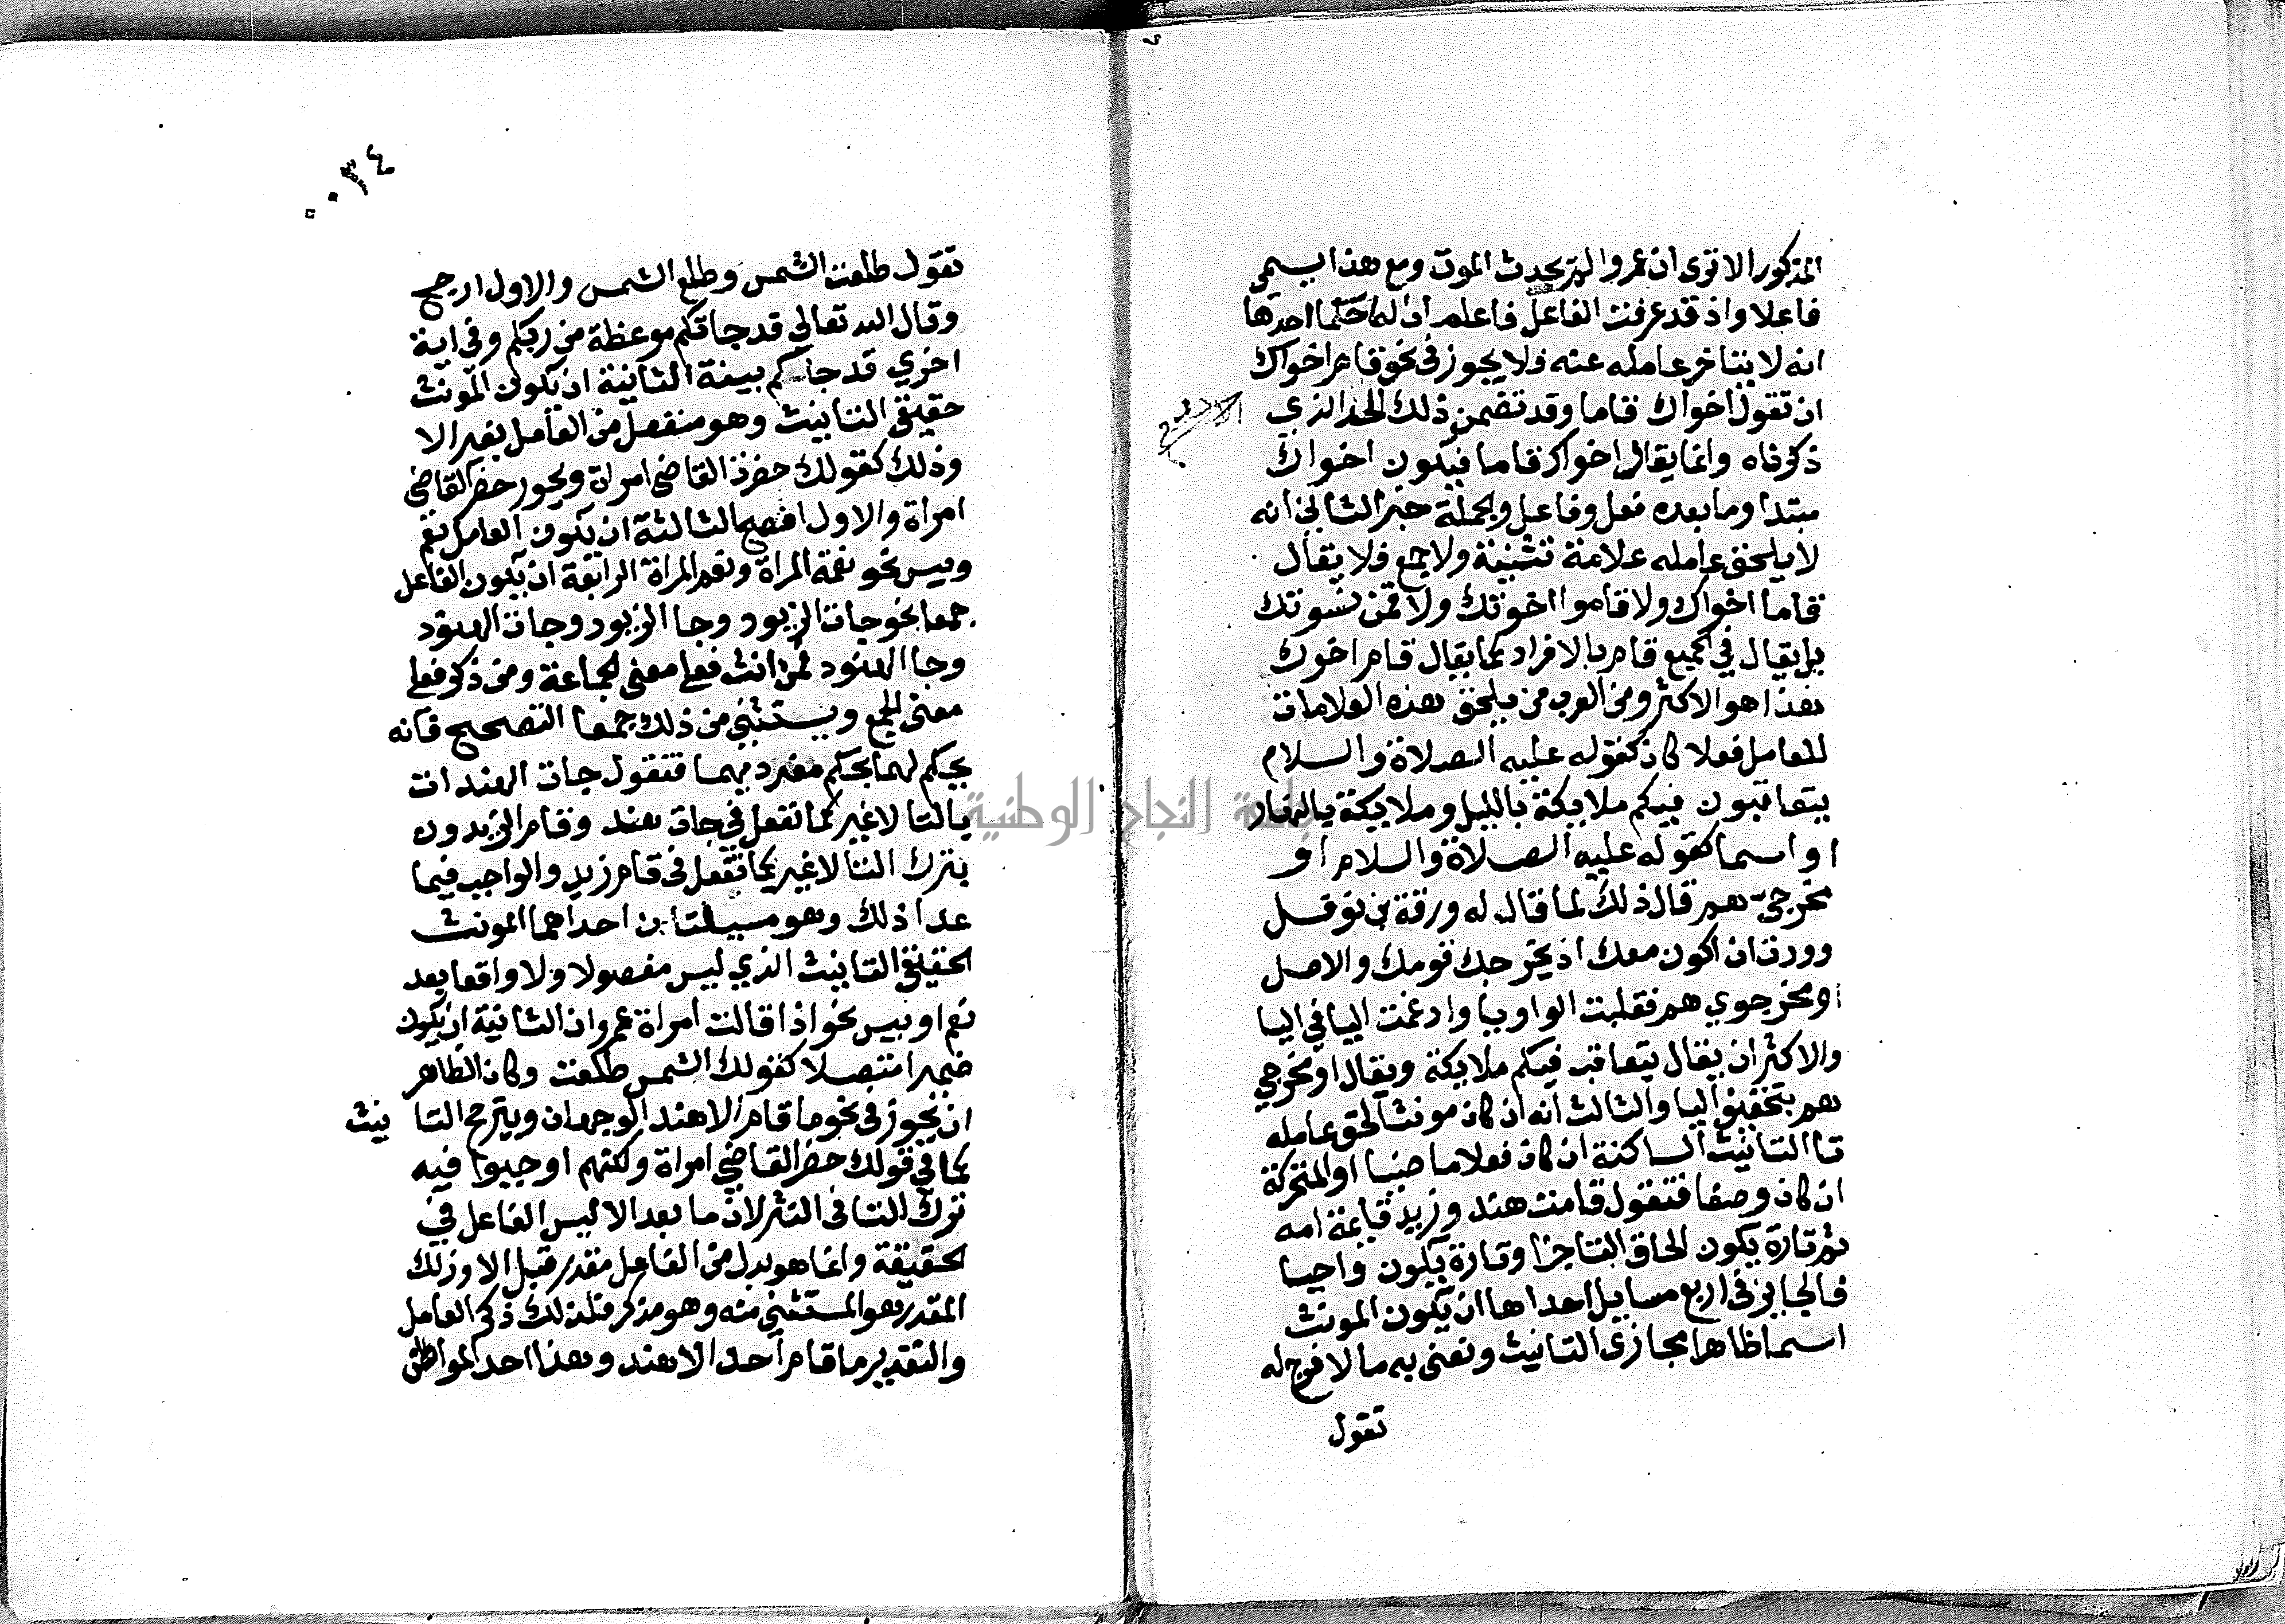 المذكور الا ترى ان عمروا لم يحدث الموت ومع هذا يسمى
فاعلا واذ قد عرفت الفاعل فاعلم ان له احكاما احدها
انه لا يتاخر عامله عنه فلا يجوز في نحو قام اخواك
ان تقول اخواك قاما وقد تضمن ذلك الحد الذي
ذكرناه وانما يقال اخواك قاما فيكون اخواك
مبتدا وما بعده فعل وفاعل والجملة خبر الثاني انه
لا يلحق عامله علامة تثنية ولا جمع فلا يقال
قاما اخواك ولا قاموا اخوتك ولا قمن نسوتك
بل يقال في الجميع قام بالافراد كما يقال قام اخوك
هذا هو الاكثر ومن العرب من يلحق هذه العلامات
للعامل فعلا كان كقوله عليه الصلاة والسلام
يتعاقبون فيكم ملايكة بالليل وملايكة بالنهار
او اسما كقوله عليه الصلاة والسلام او
مخرجيّ هم قال ذلك لما قال له ورقة بن نوفل
وودت ان اكون معك اذ يخرجك قومك والاصل
او مخرجوي هم فقلبت الواو يا وادغمت اليا في اليا
والاكثر ان يقال يتعاقب فيكم ملايكة ويقال او مخرجي
هم بتخفيف اليا والثالث انه ان كان مونثا لحق عامله
تا التانيث الساكنة ان كان فعلا ماضيا او المتحركة
ان كان وصفا فتقول قامت هند وزيد قايمة امه
ثم تارة يكون الحاق التا جايزا وتارة يكون واجبا
فالجايز في اربع مسايل احداها ان يكون المونث
اسما ظاهرا مجازى التانيث ونعنى به ما لا فرج له
تقول
٠٠٣٤
تقول طلعت الشمس وطلع الشمس والاول ارجح
وقال الله تعالى قد جاتكم موعظة من ربكم وفي اية
اخري قد جاكم بينة الثانية ان يكون المونث
حقيقى التانيث وهو منفصل من العامل بغير الا
وذلك كقولك حضرت القاضى امراة ويجوز حضر القاضى
امراة والاول افصح الثالثة ان يكون العامل نعم
وبيس نحو نعمة المراة ونعم المراة الرابعة ان يكون الفاعل
جمعا نحو جات الزيود وجا الزيود وجات الهنود
وجا الهنود فمن انث فعلى معنى الجماعة ومن ذكر فعلى
معنى الجمع ويستثنى من ذلك جمعا التصحيح فانه
يحكم لهما بحكم مفرديهما فتقول جات الهندات
بالتا لا غير كما تفعل في جات هند وقام الزيدون
بترك التا لا غير كما تفعل في قام زيد والواجب فيما
عدا ذلك وهو مسيلتان احداهما المونث
الحقيقي التانيث الذي ليس مفصولا ولا واقعا بعد
نعم او بيس نحو اذ قالت امراة عمران الثانية ان يكون
ضميرا متصلا كقولك الشمس طلعت وكان الظاهر
ان يجوز في نحو ما قام الا هند الوجهان ويترجح التانيث
كما في قولك حضر القاضي امراة ولكنهم اوجبوا فيه
ترك التا في النثر لان ما بعد الا ليس الفاعل في
الحقيقة وانما هو بدل من الفاعل مقدر قبل الا وذلك
المقدر هو المستثنى منه وهو مذكر فلذلك ذكر العامل
والتقدير ما قام احد الا هند وهذا احد المواطن
جامعة النجاح الوطنية